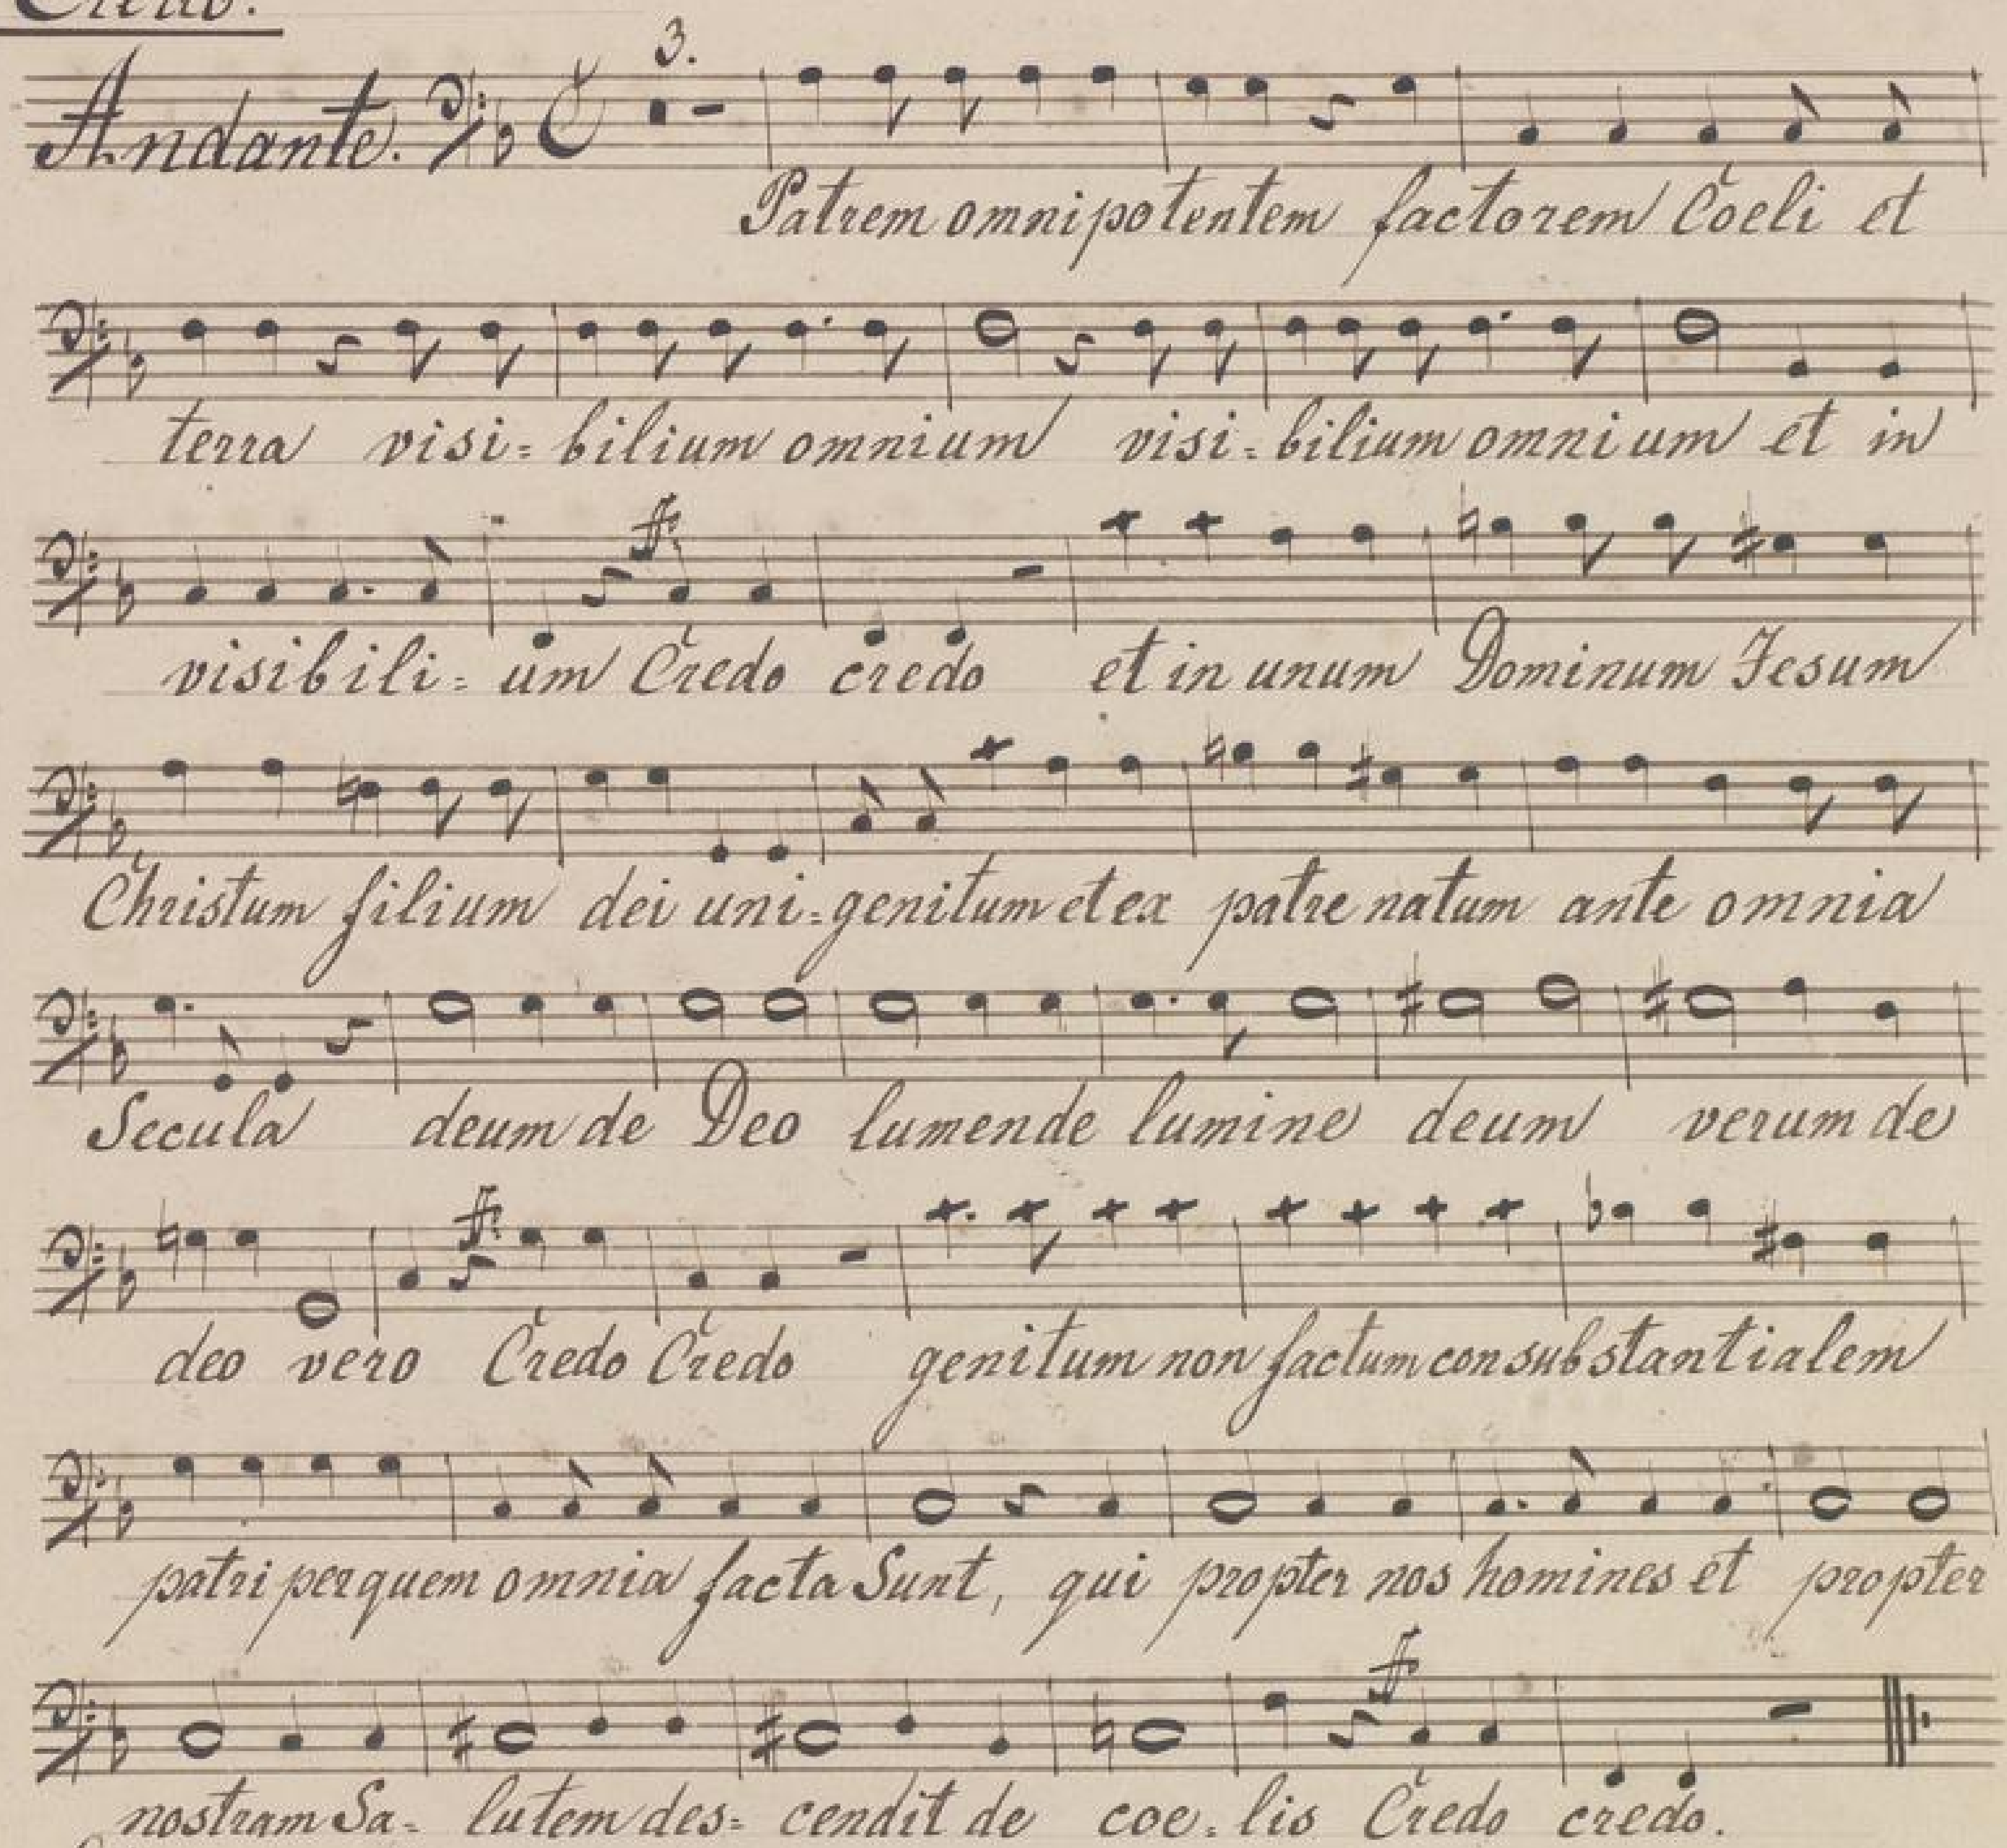 Credo.
3.
Andante.
Patrem omnipotentem factorem Coeli et
terra visi= bilium omnium visi= bilium omnium et in
ff
visibili= um Credo credo et in unum Dominum Jesum
Christum filium dei uni=genitum et ex patre natum ante omnia
Secula deum de Deo lumen de lumine deum verum de
ff
deo vero Credo Credo genitum non factum consubstantialem
patri per quem omnia facta Sunt, qui propter nos homines et propter
ff
nostram Sa= lutem des= cendit de coe= lis Credo credo.